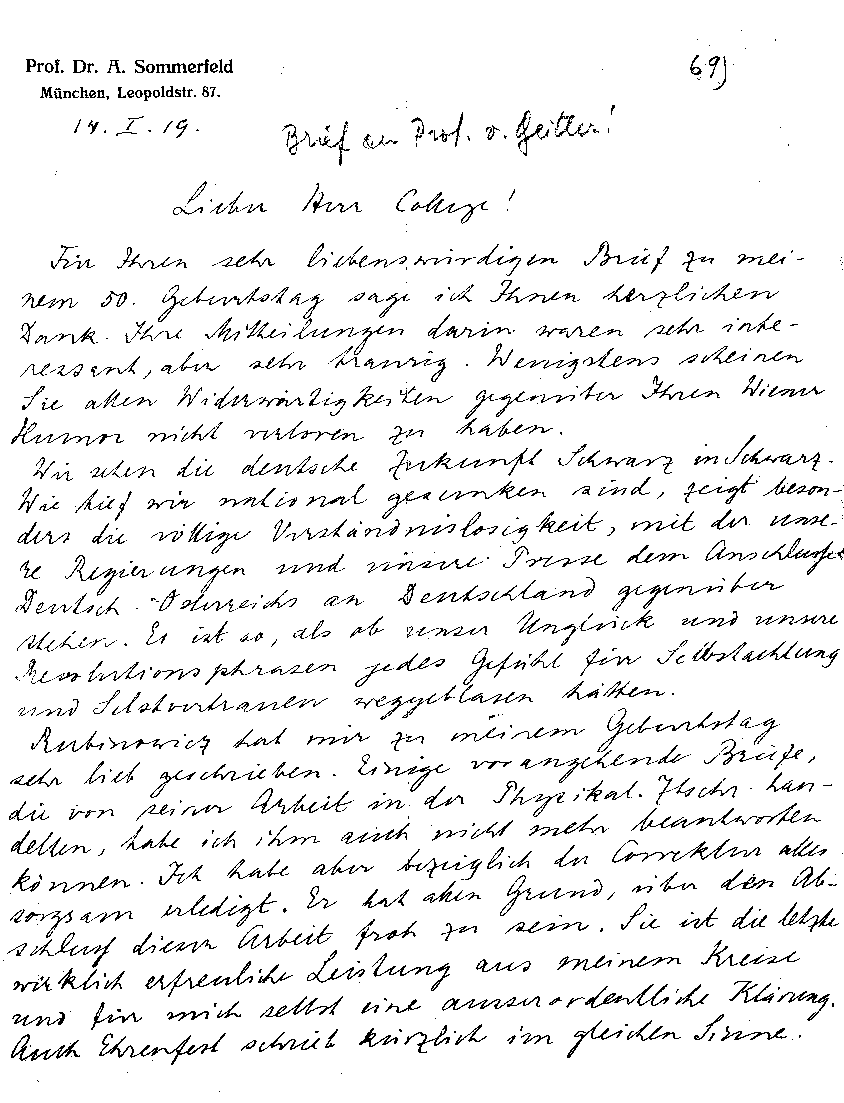 Prof. Dr. A. Sommerfeld
69)
München, Leopoldstr. 87.
14. I. 19.
Brief an Prof. v. Geitler!
Lieber Herr College!
Für Ihren sehr liebenswürdigen Brief zu mei-
nem 50. Geburtstag sage ich Ihnen herzlichen
Dank. Ihre Mittheilungen darin waren sehr inte-
ressant, aber sehr traurig. Wenigstens scheinen
Sie allen Widerwärtigkeiten gegenüber Ihren Wiener
Humor nicht verloren zu haben.
Wir sehen die deutsche Zukunft Schwarz in Schwarz.
Wie tief wir national gesunken sind, zeigt beson-
ders die völlige Verständnislosigkeit, mit der unse-
re Regierungen und unsere Presse dem Anschlusse
Deutsch-Österreichs an Deutschland gegenüber
stehen. Es ist so, als ob unser Unglück und unsere
Revolutionsphrasen jedes Gefühl für Selbstachtung
und Selstvertrauen weggeblasen hätten.
Rubinowicz hat mir zu meinem Geburtstag
sehr lieb geschrieben. Einige vorangehende Briefe,
die von seiner Arbeit in der Physikal. Ztschr. han-
delten, habe ich ihm auch nicht mehr beantworten
können. Ich habe aber bezüglich der Correktur alles
sorgsam erledigt. Er hat allen Grund, über den Ab-
schluss dieser Arbeit froh zu sein. Sie ist die letzte
wirklich erfreuliche Leistung aus meinem Kreise
und für mich selbst eine ausserordentliche Klärung.
Auch Ehrenfest schrieb kürzlich im gleichen Sinne.